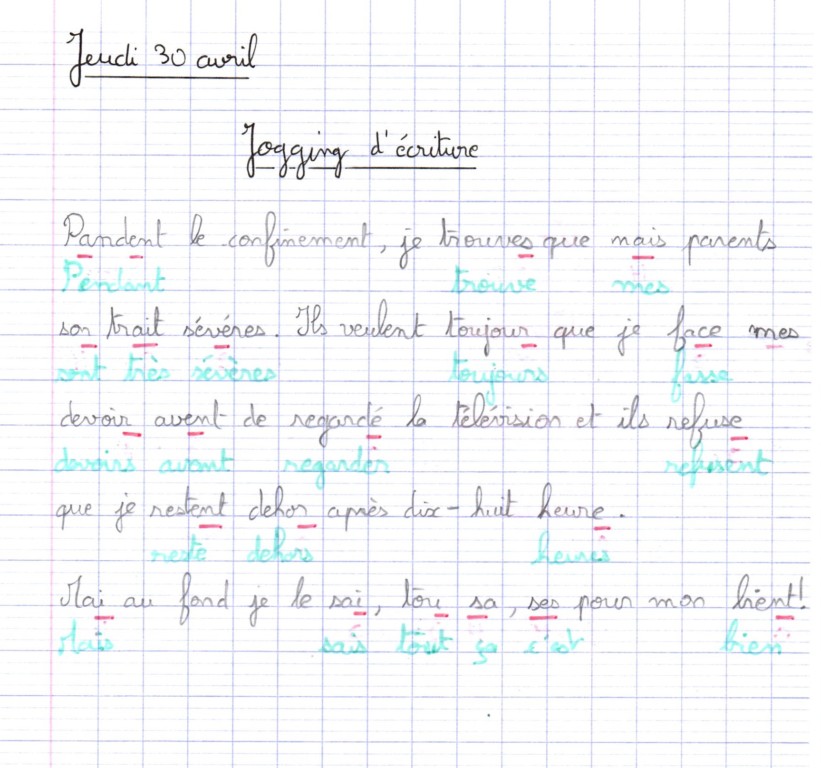 Jeudi 30 avril
Jogging d'écriture
Pandent le confinement, je trouves que mais parents
Pendant trouve mes
son trait sévéres. Ils veulent toujour que je face mes
sont très sévères toujours fasse
devoir avent de regardé la télévision et ils refuse
devoirs avant regarder refusent
que je restent dehor après dix-huit heure.
reste dehors heures
Mai au fond je le sai, tou sa, ses pour mon bient!
Mais sais tout ça c'est bien